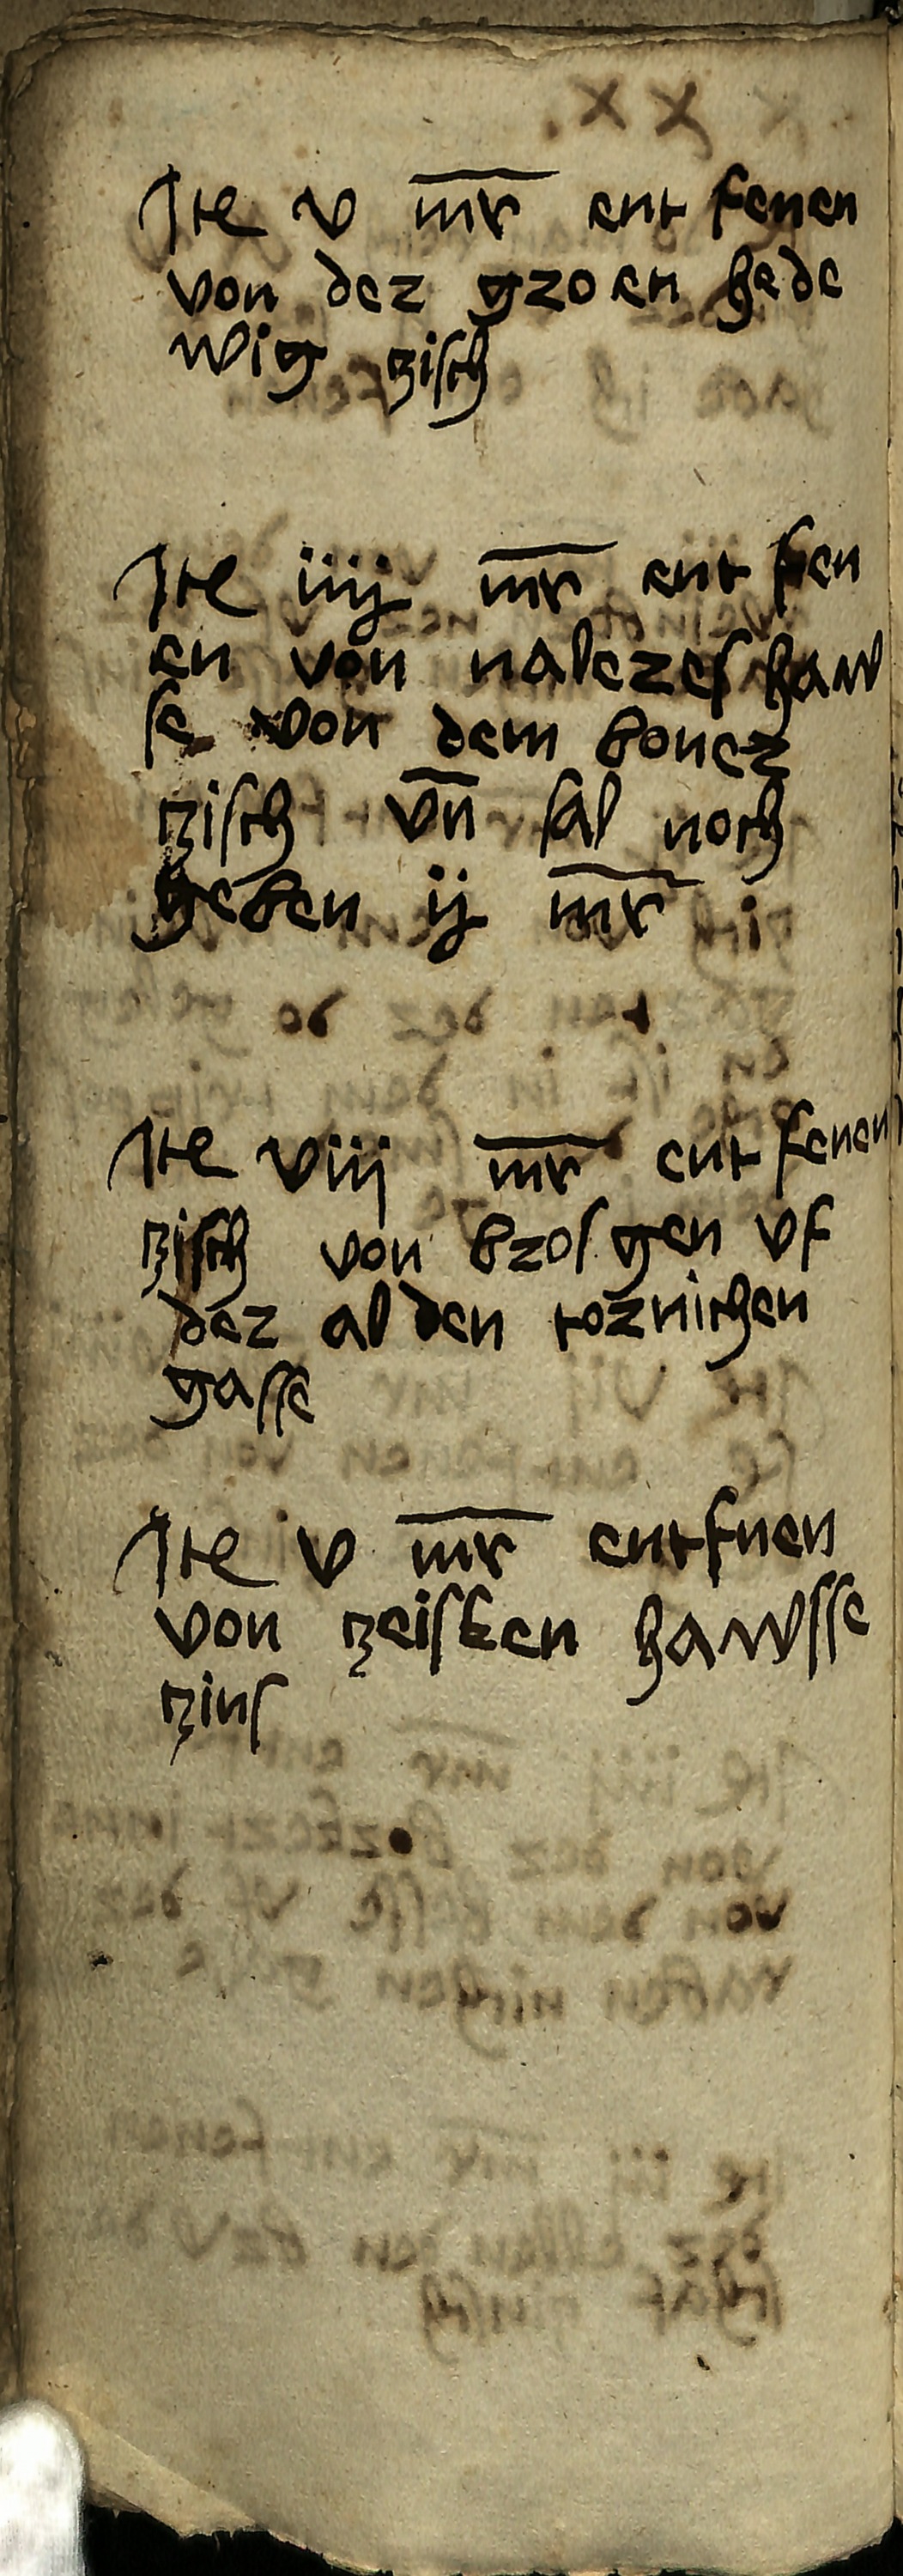 Ite v mr ent fenen
von der groen hede
wig zisch
Ite iiij mr ent fen
en von nalczes haw
se von dem boner
zisch vn sal noch
geben ij mr
Ite viij mr ent fenen
zisch von brosgen vf
der alden tornichen
gasse
Ite v mr entfnen
von zeisken hawsse
zins